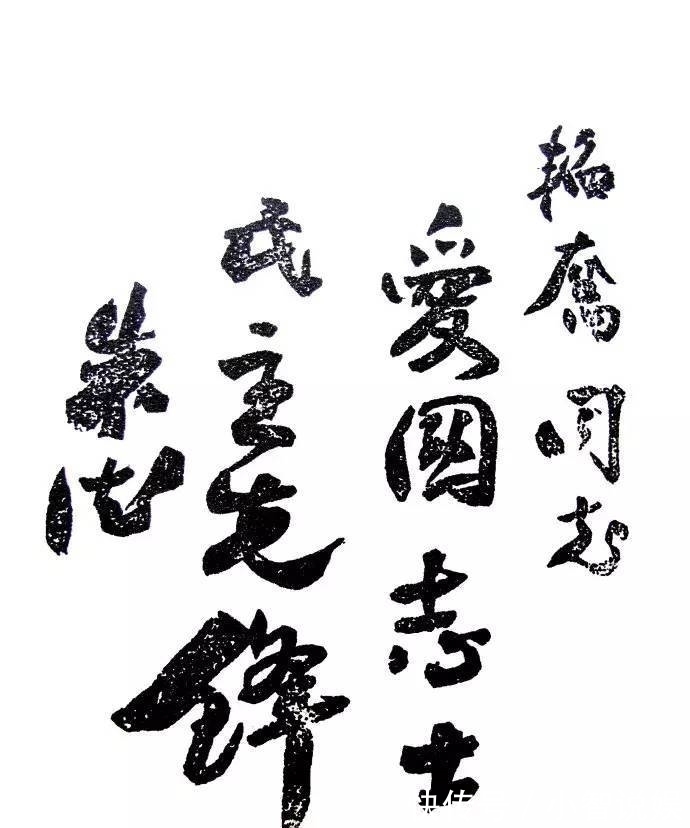 韜奮同志
愛國志士
民主先鋒
朱德